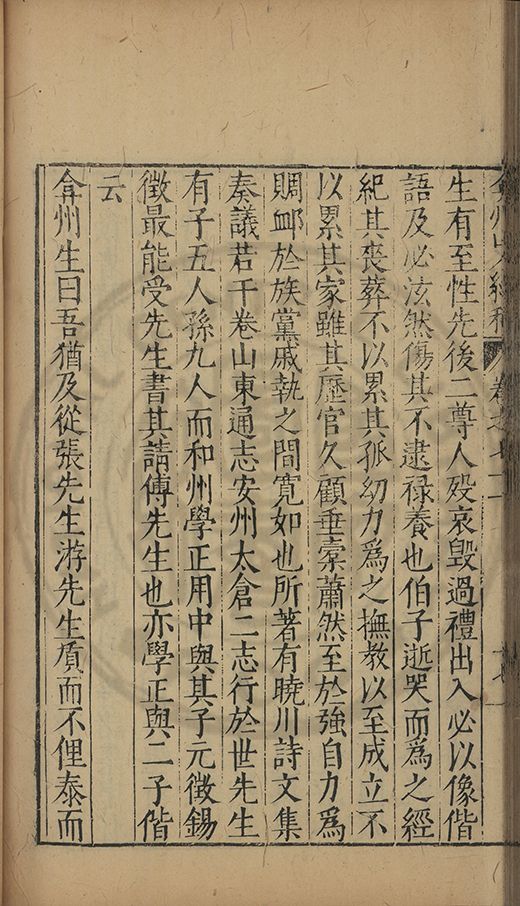 生有至性先後二尊人歿哀毀過禮出入必以像偕
語及必泫然傷其不逮祿養也伯子逝哭而為之經
紀其喪葬不以累其孤幼力為之撫教以至成立不
以累其家雖其歷官久顧垂橐蕭然至於強自力為
賙卹於族黨戚執之間寬如也所著有曉川詩文集
奏議若干卷山東通志安州太倉二志行於世先生
有子五人孫九人而和州學正用中與其子元徵錫
徵最能受先生書其請傳先生也亦學正與二子偕
云
弇州生曰吾猶及從張先生游先生質而不俚泰而